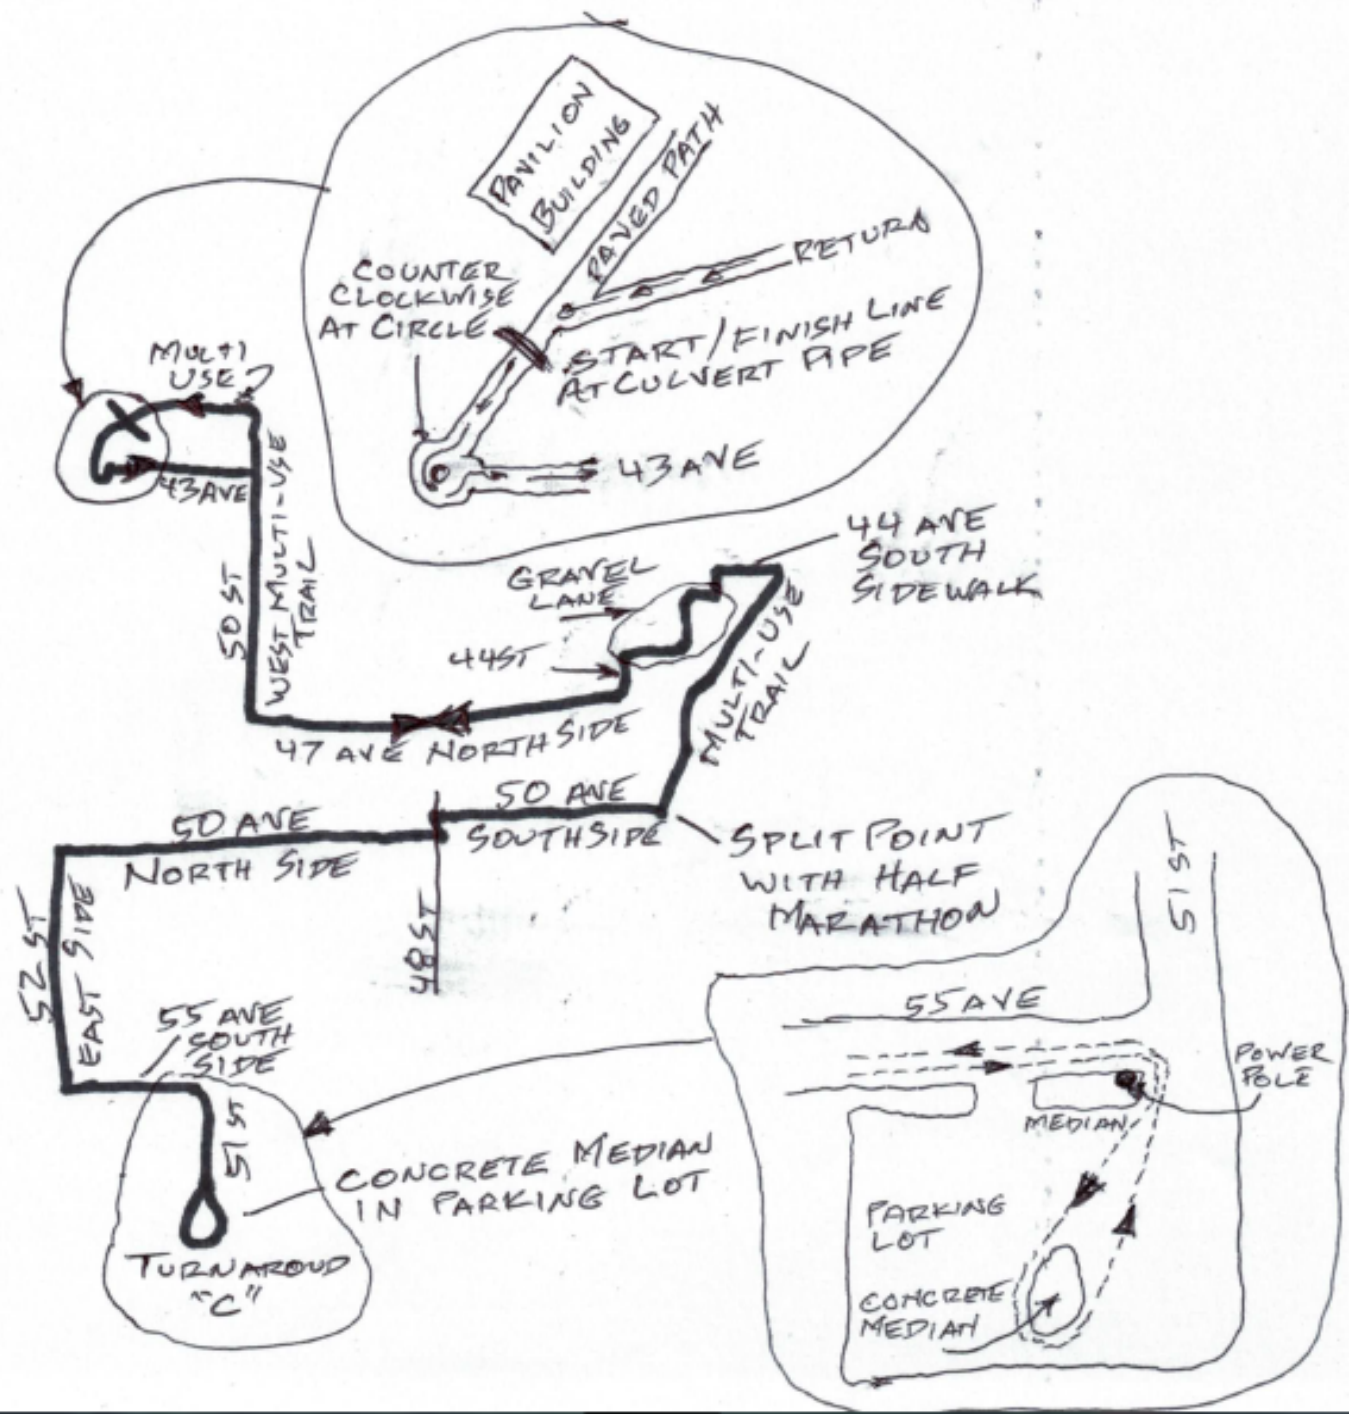 PAVILION
BUILDING
PAVED PATH
RETURN
COUNTER
CLOCKWISE
AT CIRCLE
START/FINISH LINE
AT CULVERT PIPE
43 AVE
MULTI
USE
43 AVE
50 ST
WEST MULTI-USE
TRAIL
44 AVE
SOUTH
SIDEWALK
GRAVEL
LANE
44 ST
MULTI-USE
TRAIL
47 AVE NORTH SIDE
50 AVE
SOUTH SIDE
50 AVE
NORTH SIDE
SPLIT POINT
WITH HALF
MARATHON
48 ST
52 ST
EAST SIDE
55 AVE
SOUTH
SIDE
51 ST
CONCRETE MEDIAN
IN PARKING LOT
TURNAROUD
"C"
51 ST
55 AVE
POWER
POLE
MEDIAN
PARKING
LOT
CONCRETE
MEDIAN